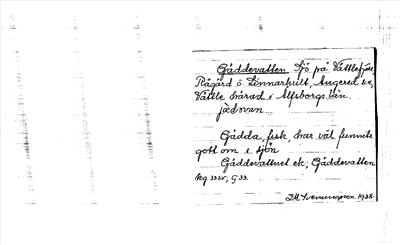 Gäddevatten Sjö på Vättlefjäll
Rågård ö. Linnarhult, Angered sn,
Vättle härad i Älfsborgs län.
jädsvan
Gädda, fisk, har väl funnits
gott om i sjön
Gäddevattnet ek; Gäddevatten
kg
1938.